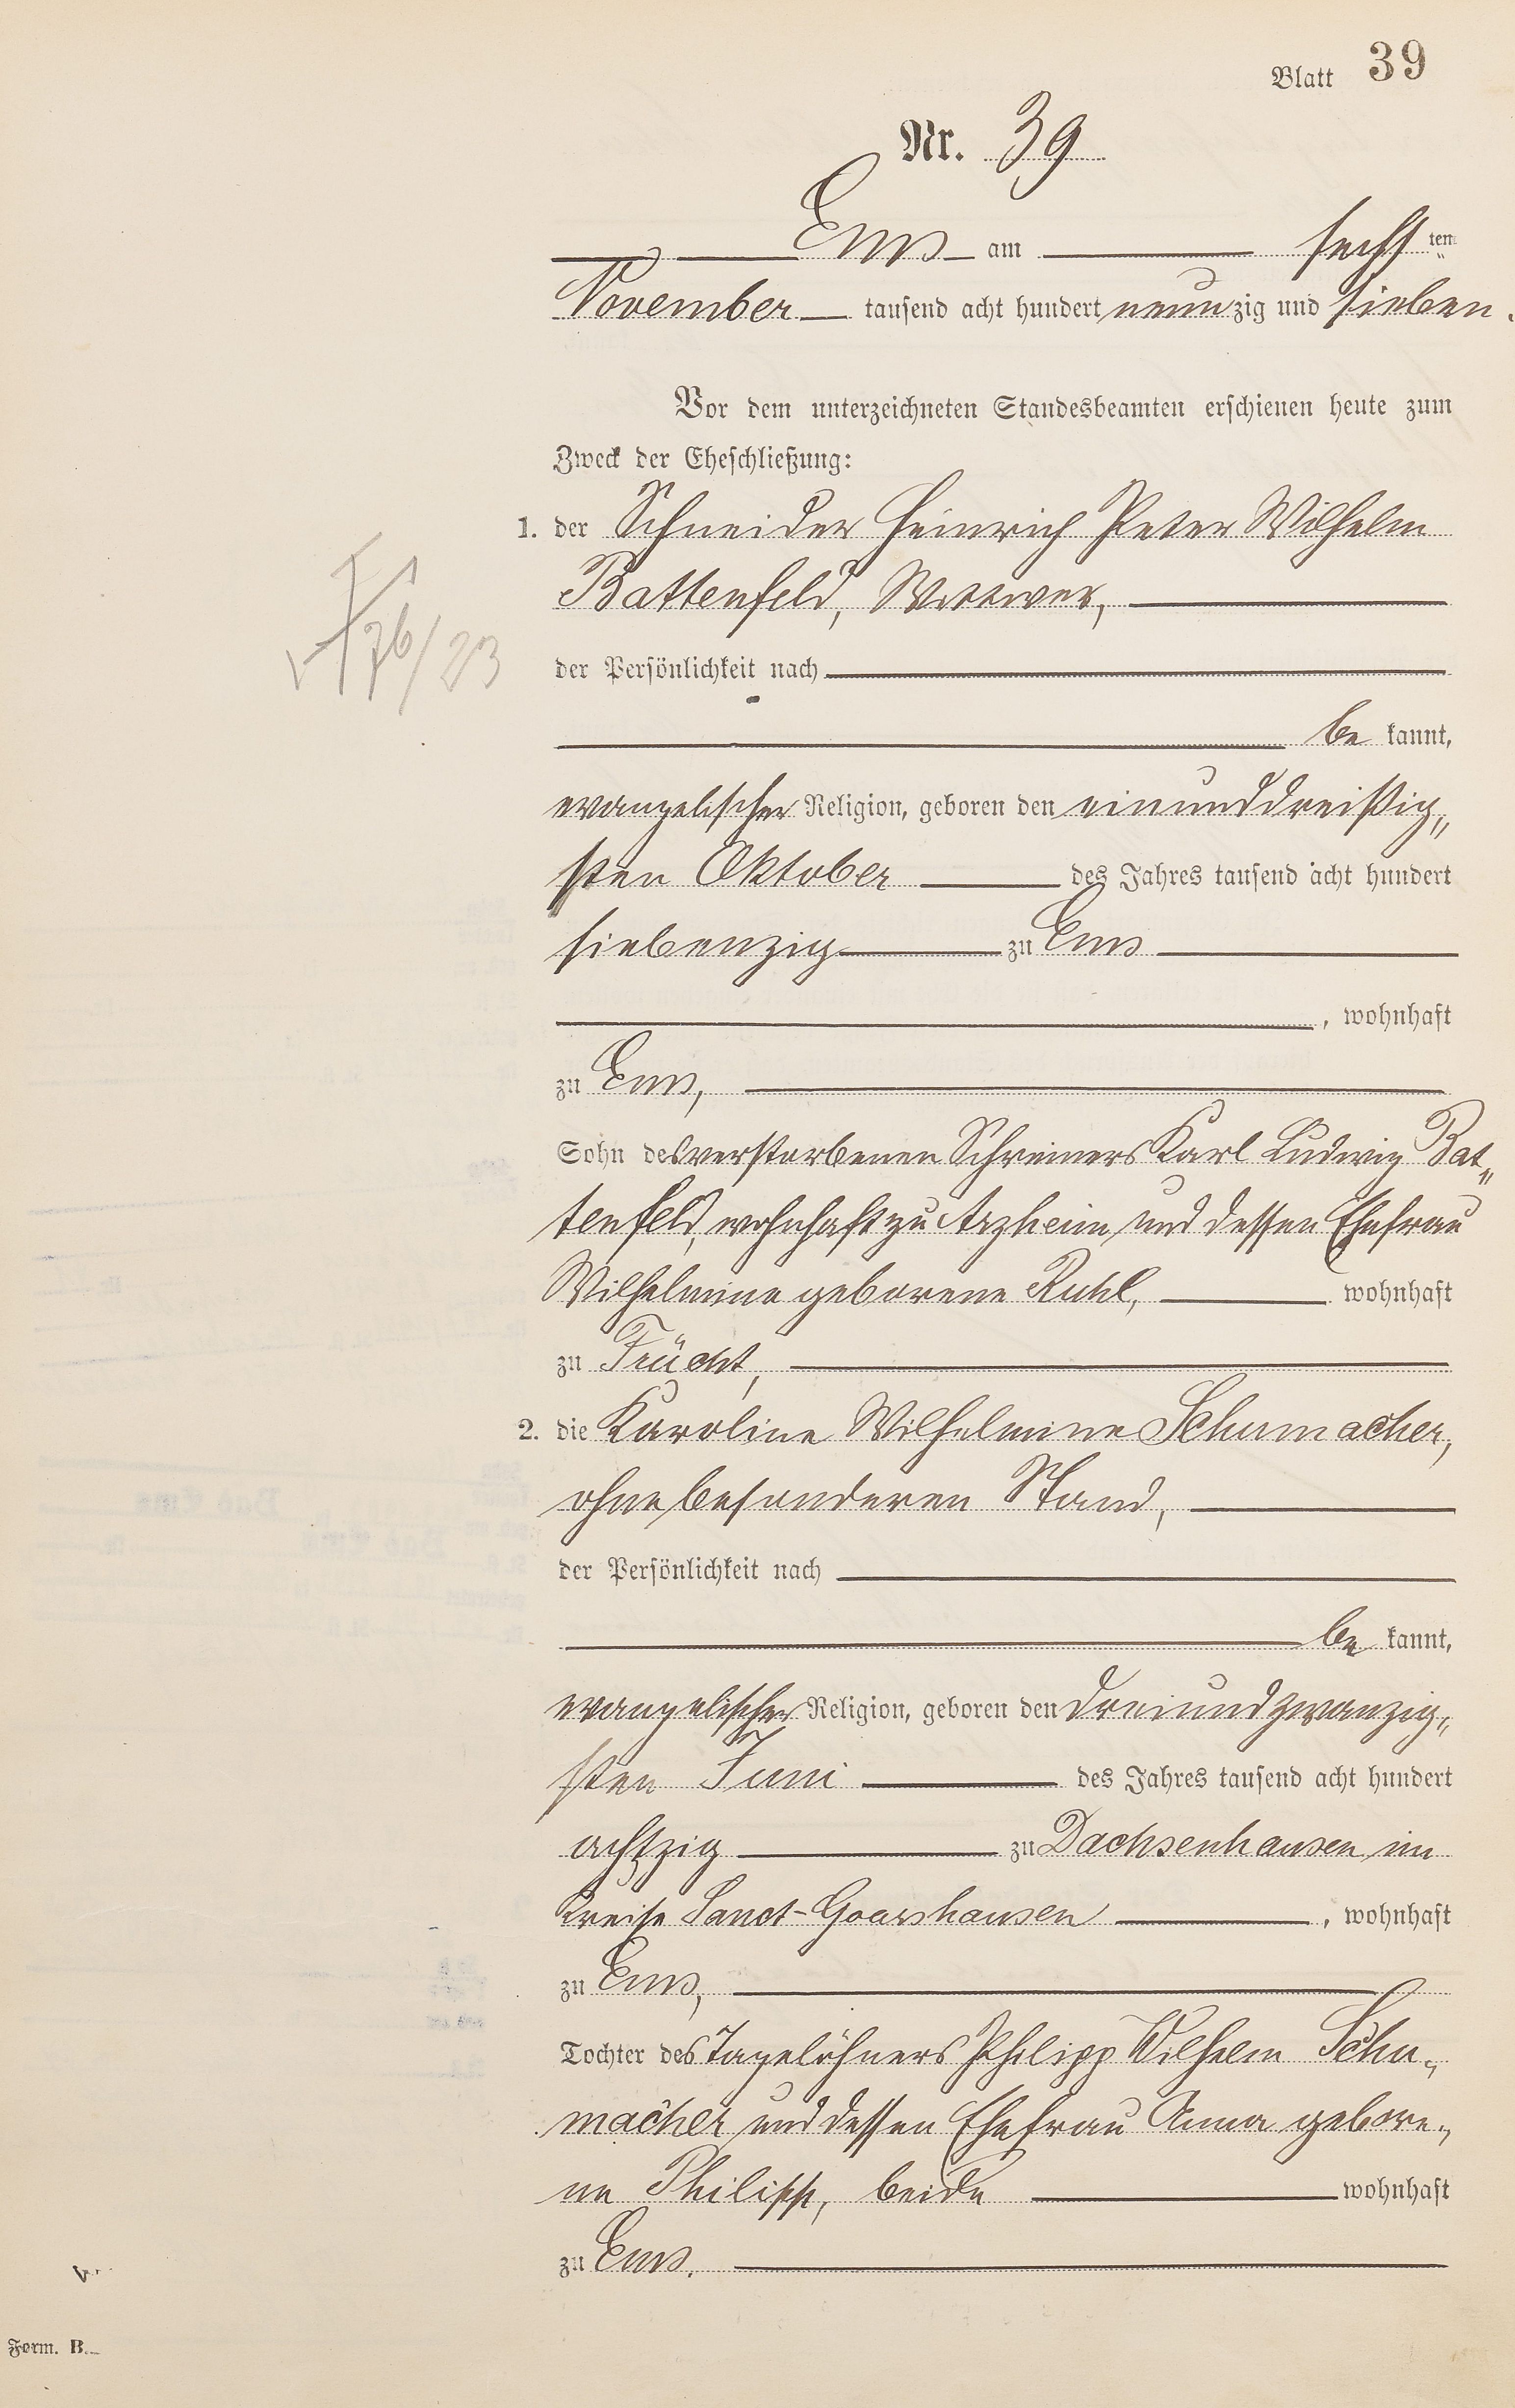 Blatt 39
Nr. 39
Ems am sechs ten
November tausend acht hundert neunzig und sieben.
Vor dem unterzeichneten Standesbeamten erschienen heute zum
Zweck der Eheschließung:
1. der Schneider Heinrich Peter Wilhelm
Battenfeld, Wittwer,
der Persönlichkeit nach
be kannt,
evangelischer Religion, geboren den einunddreißig„
sten Oktober des Jahres tausend acht hundert
siebenzig zu Ems
, wohnhaft
zu Ems,
Sohn des verstorbenen Schreiners Karl Ludwig Bat„
tenfeld, wohnhaft zu Arzheim, und dessen Ehefrau
Wilhelmine geborene Ruhl, wohnhaft
zu Frücht,
2. die Karoline Wilhelmine Schumacher,
ohne besonderen Stand,
der Persönlichkeit nach
be kannt,
evangelischer Religion, geboren den dreiundzwanzig„
sten Juni des Jahres tausend acht hundert
achtzig zu Dachsenhausen im
Kreise Sanct-Goarshausen, wohnhaft
zu Ems,
Tochter des Tagelöhners Philipp Wilhelm Schu„
macher und dessen Ehefrau Anna gebore„
ne Philipp, beide wohnhaft
zu Ems.
Form. B.